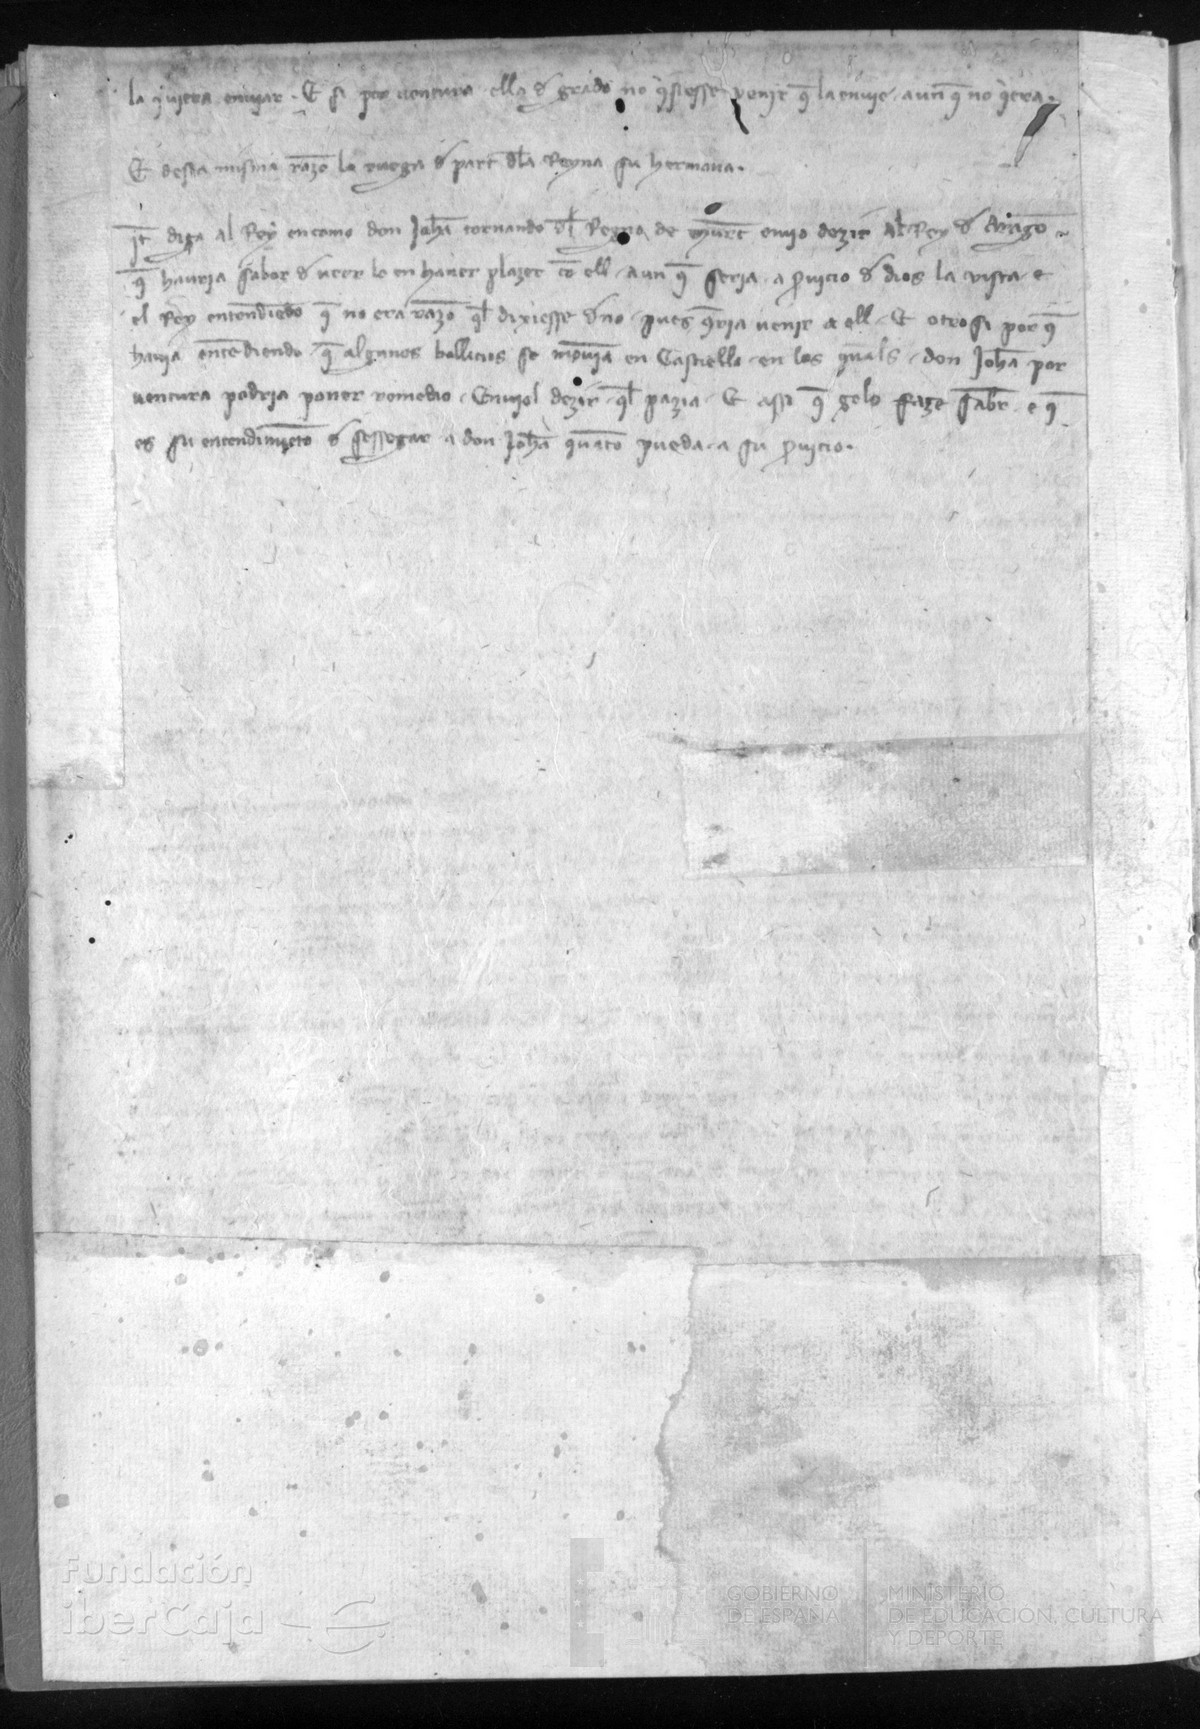 la q̃uiera enviar · Et si por uentura ella d̃ grado no q̃siesse venir q̃ la enuie aun q̃ no q̃era ·
Et desta misma razõ lo ruega d̃ part dl̃a Reyna su hermana ·
Jt̃ diga al Rey en como don Joh̃a tornando dl̃ Regno de Murc̃ enuio dezir al Rey d̃ Arago
q̃ hauria sabor d̃ ueer lo en hauer plazer cõ ell · aun q̃ seria a p̃uicio d̃ dios la vista e
el Rey entendiẽdo q̃ no era razõ ql̃ dixiesse d̃ no pues q̃ria uenir a ell · Et otrosi por q̃
hauia entẽdiendo q̃ algunos bollicios se mouiã en Castiella en los quals don Joh̃a por
uentura podria poner remedio · Enuiol dezir ql̃ pazia · Et assi q̃ gelo faze sabr̃ e q̃
es su entendimiẽto d̃ sessegar a don Joh̃a quãto pueda a su p̃uicio ·
Fundación
iberCaja
GOBIERNO
DE ESPAÑA
MINISTERIO
DE EDUCACIÓN, CULTURA
Y DEPORTE